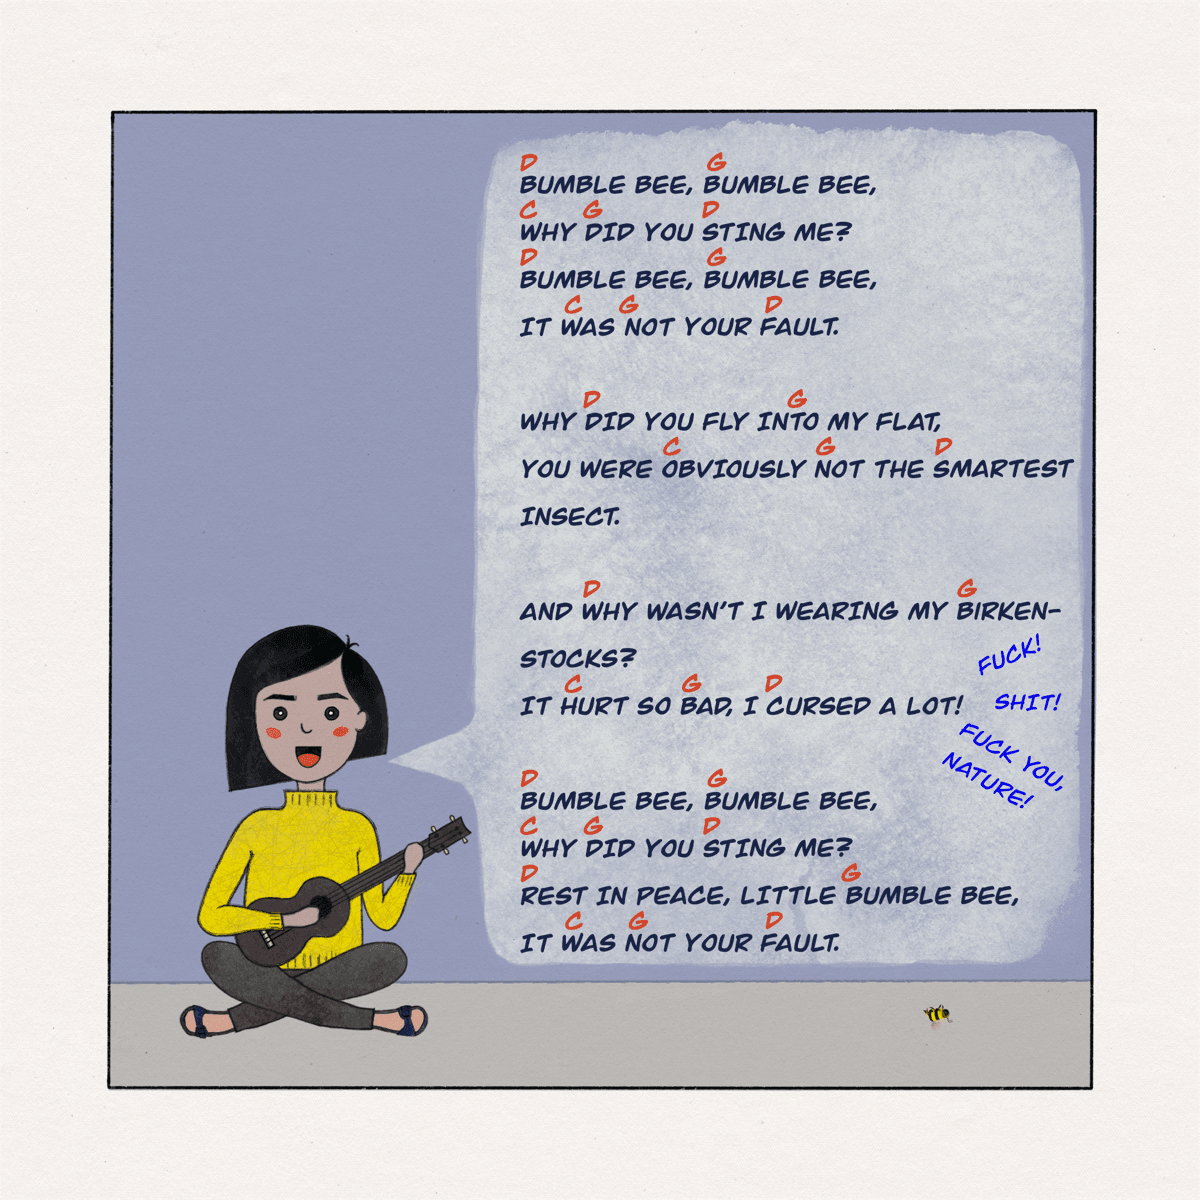 D G
BUMBLE BEE, BUMBLE BEE,
C G D
WHY DID YOU STING ME?
D G
BUMBLE BEE, BUMBLE BEE,
C G D
IT WAS NOT YOUR FAULT.
D G
WHY DID YOU FLY INTO MY FLAT,
C G D
YOU WERE OBVIOUSLY NOT THE SMARTEST
INSECT.
D G
AND WHY WASN'T I WEARING MY BIRKEN-
STOCKS?
C G D
IT HURT SO BAD, I CURSED A LOT!
FUCK!
SHIT!
FUCK YOU,
NATURE!
D G
BUMBLE BEE, BUMBLE BEE,
C G D
WHY DID YOU STING ME?
D G
REST IN PEACE, LITTLE BUMBLE BEE,
C G D
IT WAS NOT YOUR FAULT.